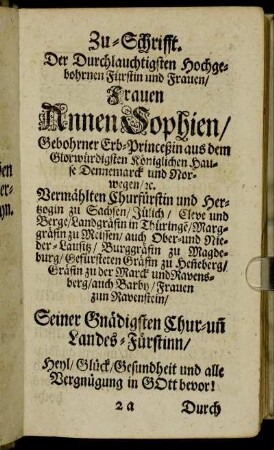 Zu-Schrifft.
Der Durchlauchtigsten Hochge-
bohrnen Fürstin und Frauen/
Frauen
Annen Sophien/
Gebohrner Erb-Princeßin aus dem
Glorwürdigsten Königlichen Hau-
se Dennemarck und Nor-
wegen/ ꝛc.
Vermählten Churfürstin und Her-
tzogin zu Sachsen/ Jülich/ Cleve und
Berge/ Landgräfin in Thüringē/ Marg-
gräfin zu Meissen/ auch Ober-und Nie-
der-Lausitz/ Burggräfin zu Magde-
burg/ Gefürsteten Gräfin zu Heñeberg/
Gräfin zu der Marck undRavens-
berg/auch Barby/ Frauen
zum Ravenstein/
Seiner Gnädigsten Chur-uñ
Landes-Fürstinn/
Heyl/ Glück/ Gesundheit und alle
Vergnügung in GOtt bevor!
2 a Durch